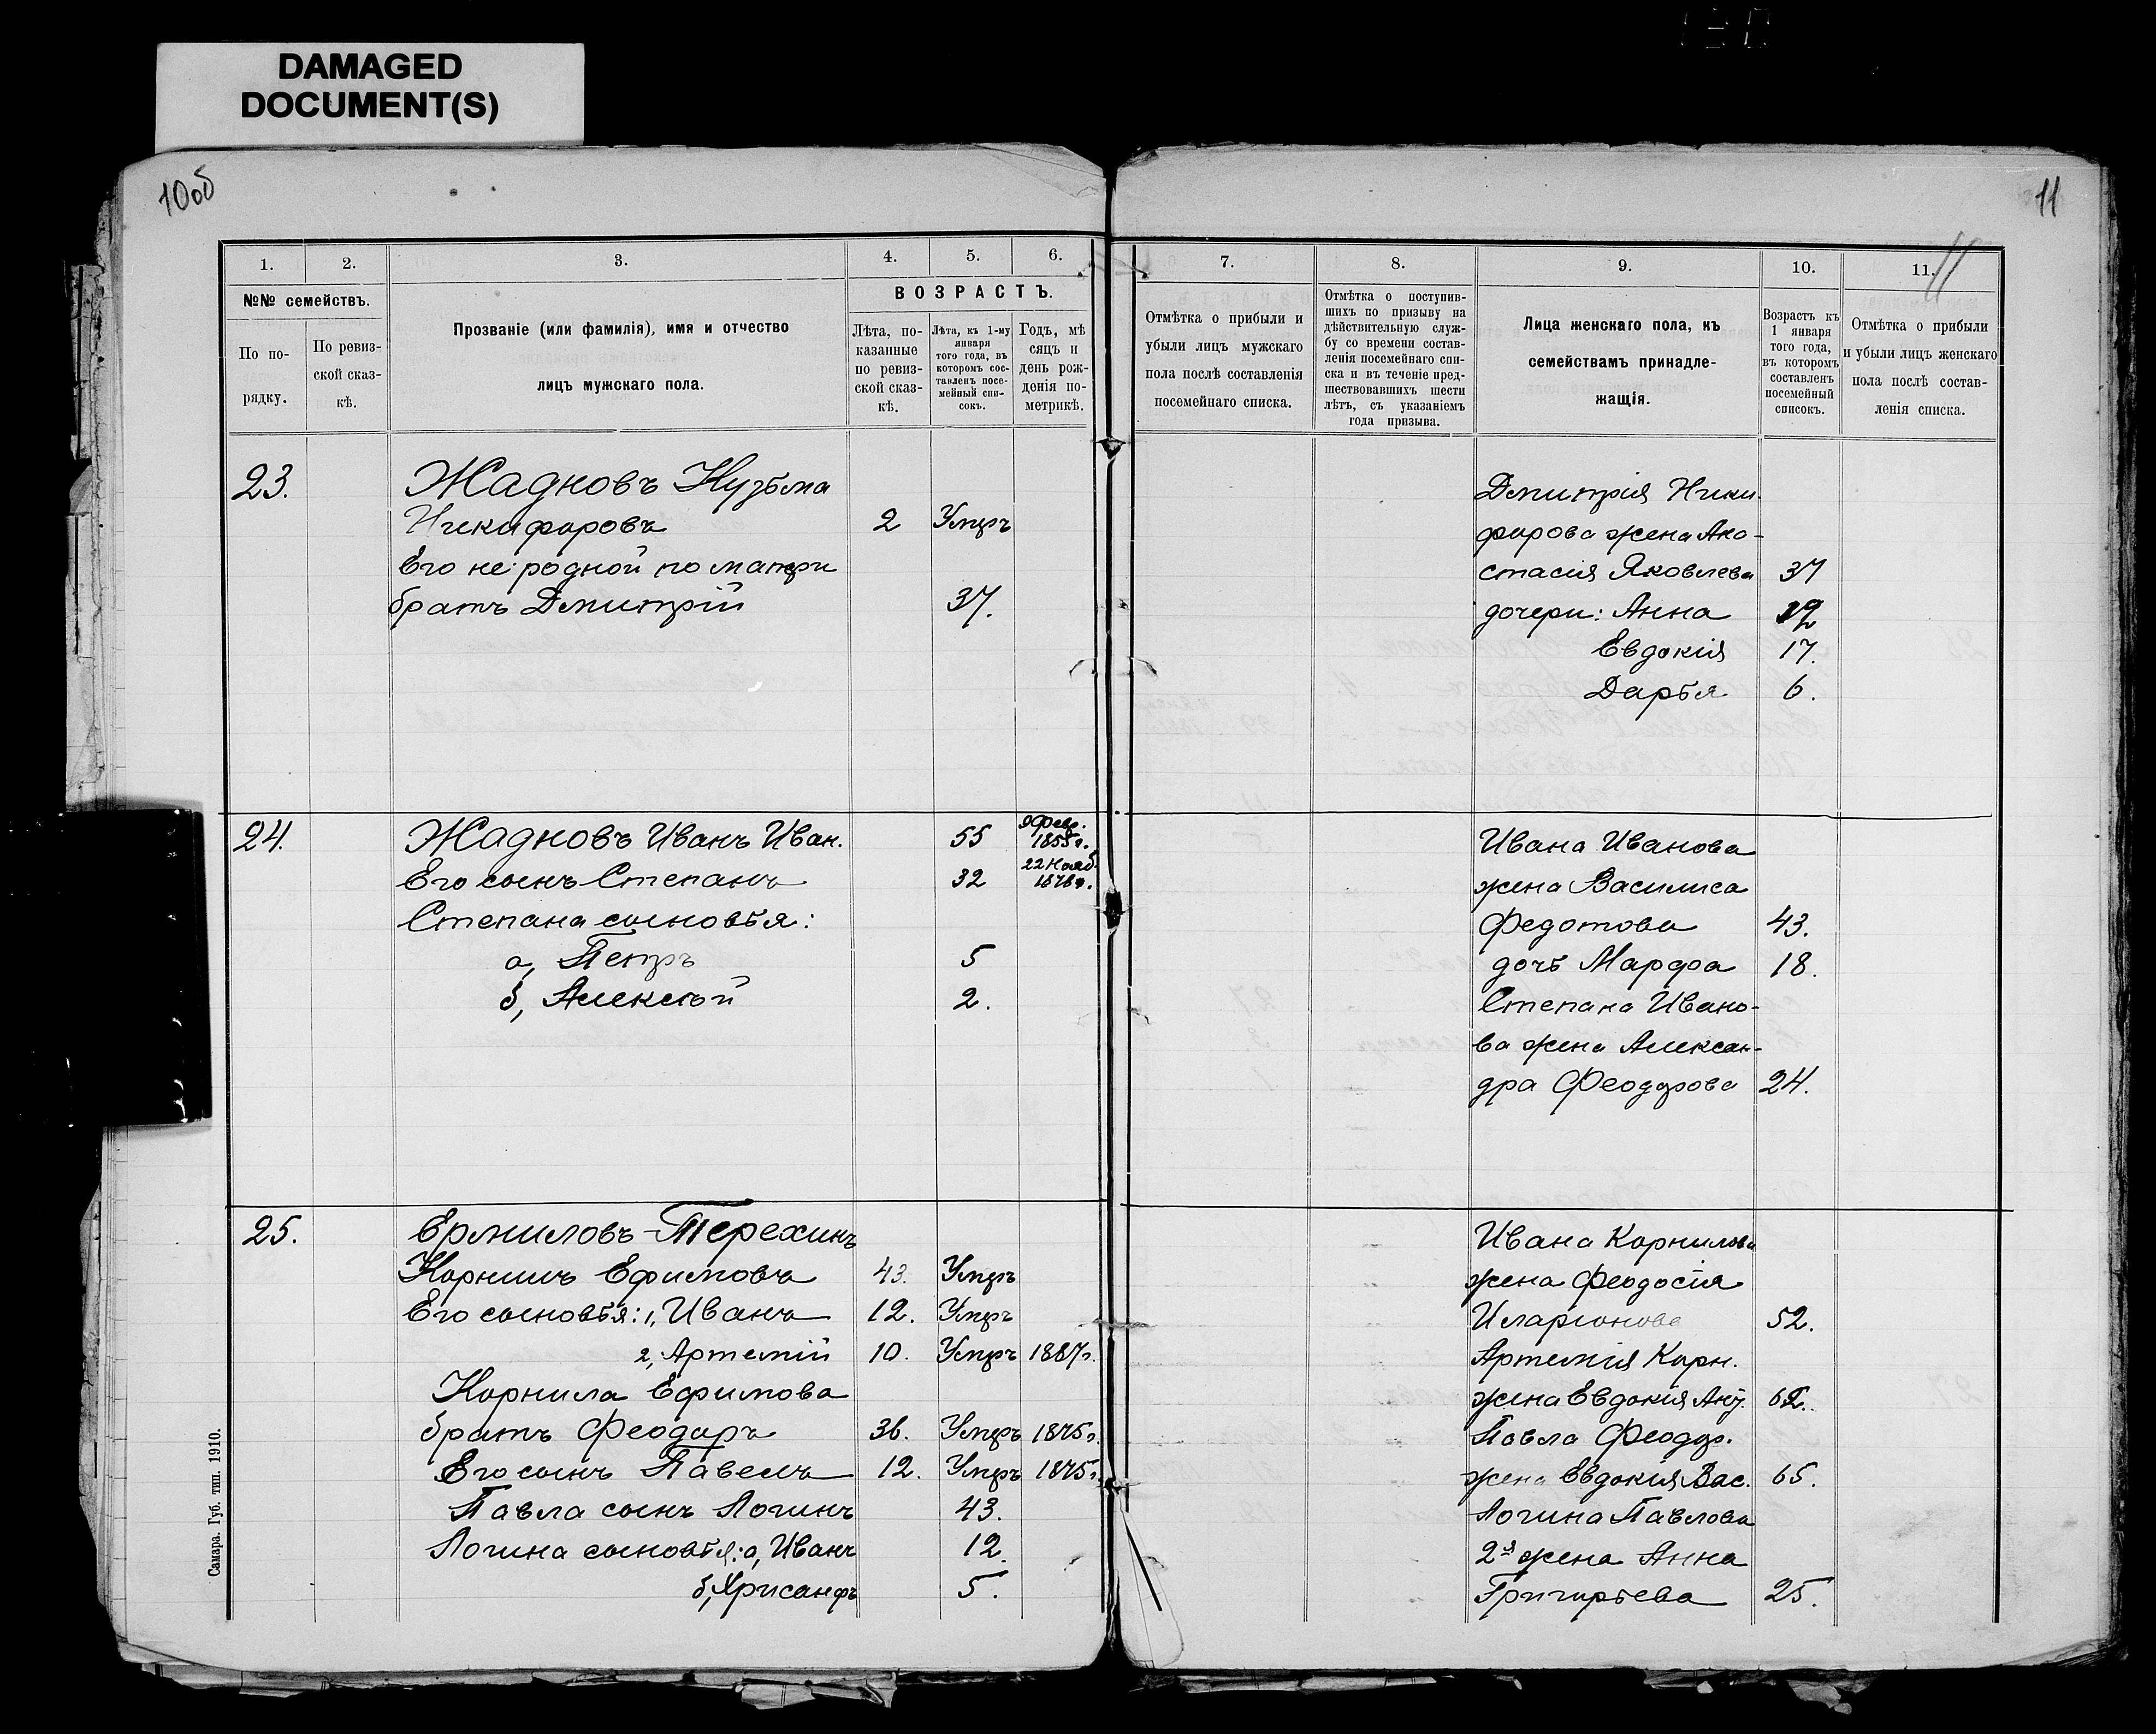 DAMAGED
DOCUMENT(S)
10об
11
11
1.
2.
3.
4.
5.
6.
№№ семействъ.
По по-
рядку.
По ревиз-
ской сказ-
кѣ.
Прозваніе (или фамилія), имя и отчество
лицъ мужскаго пола.
ВОЗРАСТЪ.
Лѣта, по-
казанные
по ревиз-
ской сказ-
кѣ.
Лѣта, къ 1-му
января
того года, въ
которомъ сос-
тавленъ посе-
мейный спи-
сокъ.
Годъ, мѣ
сяцъ и
день рож-
денія по-
метрикѣ.
7.
8.
9.
10.
11.
Отмѣтка о прибыли и
убыли лицъ мужскаго
пола послѣ составленія
посемейнаго списка.
Отмѣтка о поступив-
шихъ по призыву на
дѣйствительную служ-
бу со времени состав-
ленія посемейнаго спи-
ска и въ теченіе пред-
шествовавшихъ шести
лѣтъ, съ указаніемъ
года призыва.
Лица женскаго пола, къ
семействамъ принадле-
жащія.
Возрастъ къ
1 января
того года,
въ которомъ
составленъ
посемейный
списокъ.
Отмѣтка о прибыли
и убыли лицъ женскаго
пола послѣ состав-
ленія списка.
23. Жадновъ Кузьма
Никифоровъ 2 Умеръ
Его не родной по матери
братъ Дмитрій 37.
Дмитрія Ники-
форова жена Ана-
стасія Яковлева 37
дочери: Анна
Евдокія 17.
Дарья 6.
24. Жадновъ Иванъ Иван. 55 9 Февр. 1855г.
Его сынъ Степанъ 32 22 Нояб. 1878г.
Степана сыновья:
а, Петръ 5
б, Алексѣй 2.
Ивана Иванова
жена Василиса
Федотова 43.
дочь Марфа 18.
Степана Ивано-
ва жена Алексан-
дра Феодорова 24.
25. Ермиловъ-Терехинъ
Корнилъ Ефимовъ 43. Умеръ
Его сыновья: 1, Иванъ 12. Умеръ
2, Артемій 10. Умеръ 1887г.
Корнила Ефимова
братъ Феодоръ 36. Умеръ 1875г.
Его сынъ Павелъ 12. Умеръ 1875г.
Павла сынъ Логинъ 43.
Логина сыновья: а, Иванъ 12.
б, Хрисанфъ 5.
Ивана Корнилова
жена Феодосія
Иларіонова 52.
Артемія Корн.
жена Евдокія
Павла Феодор.
жена Евдокія Вас. 65.
Логина Павлова
2я жена Анна
Григорьева 25.
Самара. Губ. тип. 1910.